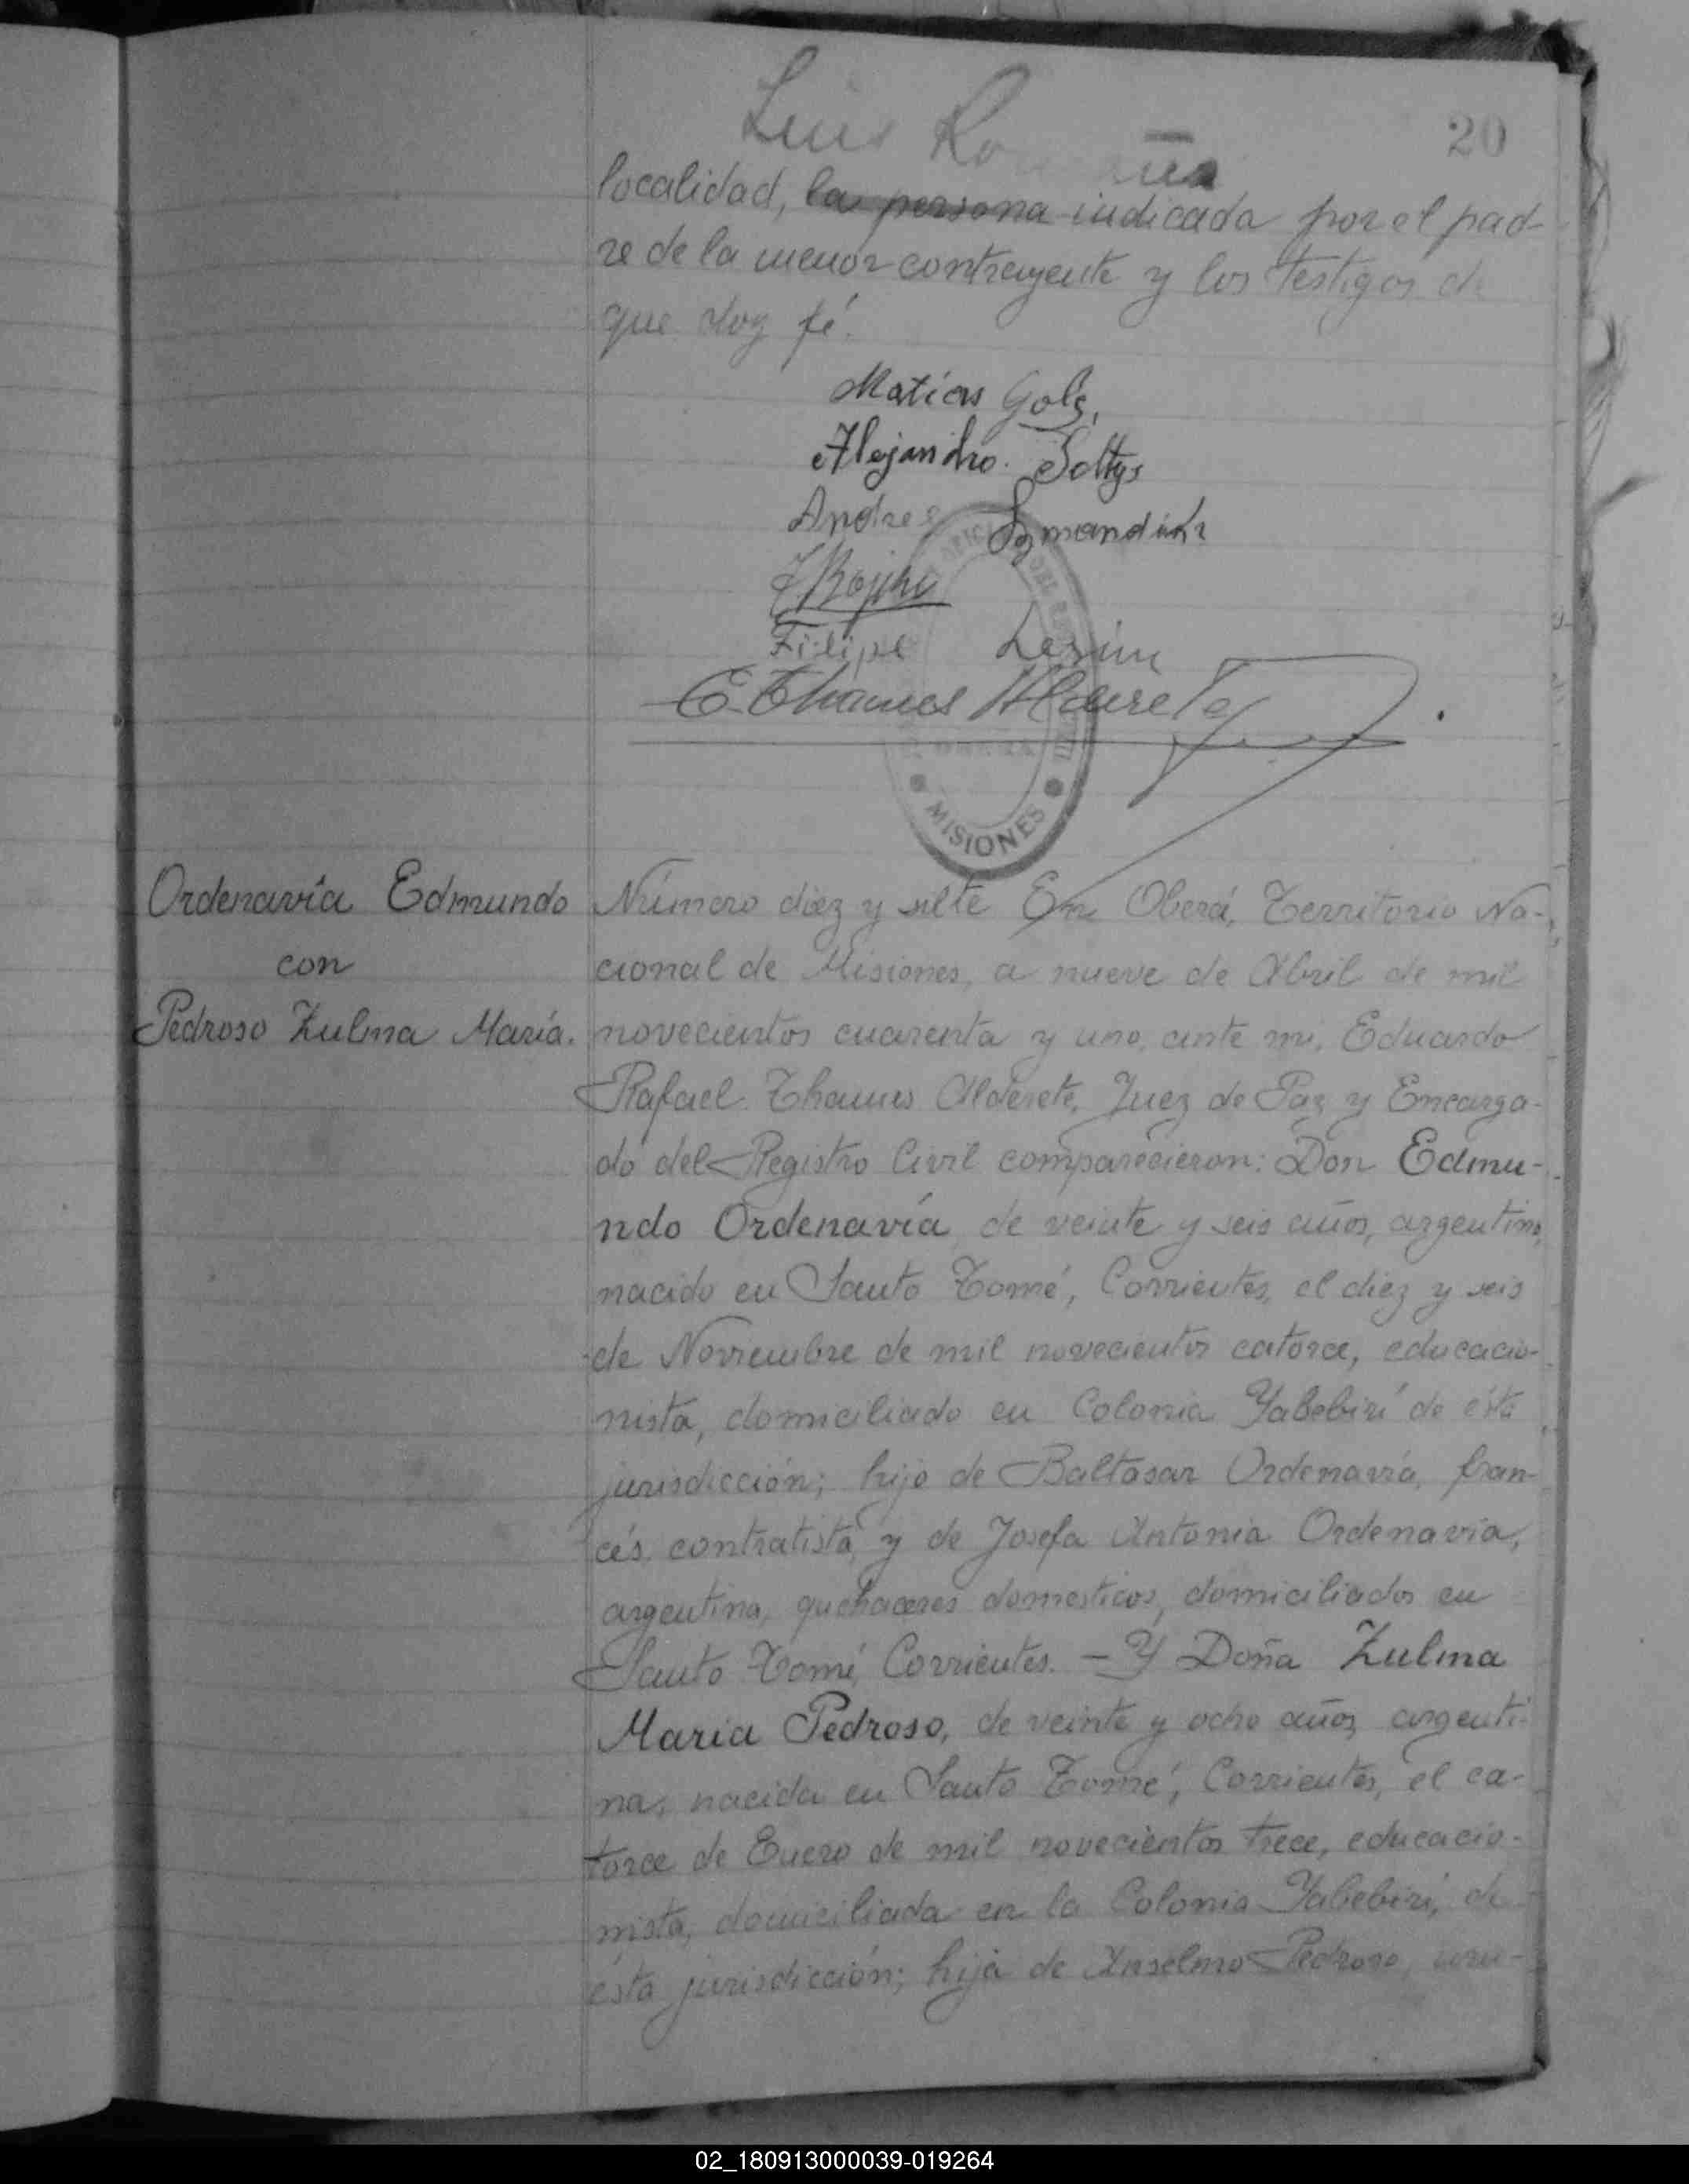 Luis
20
localidad, la persona indicada por el pad-
re de la menor contrayente y los testigos de
que doy fé.
Matias Gols,
Alejandro Soltys
Andres
Filipe
E. Thames Alderete
MISIONES
Ordenavía Edmundo
con
Pedroso Zulma María.
Número diez y siete En Oberá, Territorio Na-
cional de Misiones, a nueve de Abril de mil
novecientos cuarenta y uno, ante mi, Eduardo
Rafael Thames Alderete, Juez de Paz y Encarga-
do del Registro Civil comparecieron: Don Edmu-
ndo Ordenavía, de veinte y seis años, argentino,
nacido en Santo Tomé, Corrientes, el diez y seis
de Noviembre de mil novecientos catorce, educacio-
nista, domiciliado en Colonia Yabebirí de ésta
jurisdicción; hijo de Baltasar Ordenavía, fran-
cés, contratista y de Josefa Antonia Ordenavía,
argentina, quehaceres domesticos, domiciliados en
Santo Tomé, Corrientes. - Y Doña Zulma
María Pedroso, de veinte y ocho años, argenti-
na, nacida en Santo Tomé, Corrientes, el ca-
torce de Enero de mil novecientos trece, educacio-
nista, domiciliada en la Colonia Yabebirí, de
ésta jurisdicción; hija de Anselmo Pedroso, uru-
02_180913000039-019264